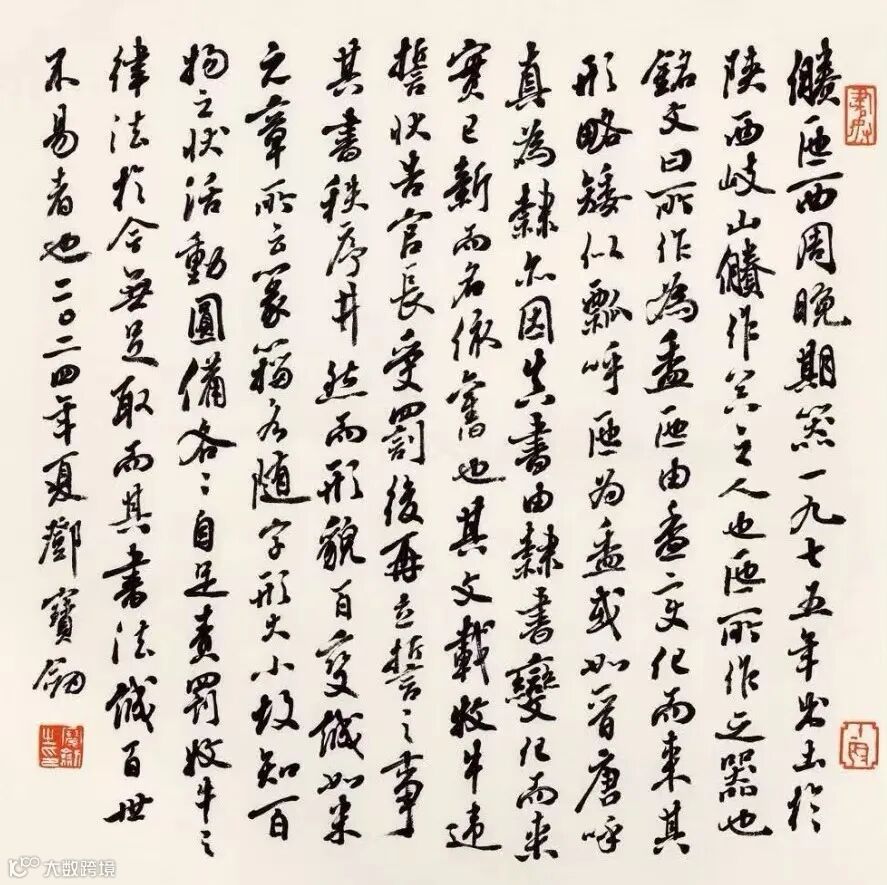 𠑇匜西周晚期器一九七五年出土於
陝西岐山𠑇作器之人也匜所作之器也
銘文曰所作為盉匜由盉變化而來其
形略矮似瓢呼匜為盉或如晉唐呼
真為隸亦因真書由隸書變化而來
實已新而名依舊也其文載牧牛違
誓狀告官長受罰後再立誓之事
其書秩序井然而形貌百變誠如米
元章所云篆籀各隨字形大小故知百
物之狀活動圓備各〻自足責罰牧牛之
律法於今無足取而其書法誠百世
不易者也二〇二四年夏鄧寶劍
大数跨境